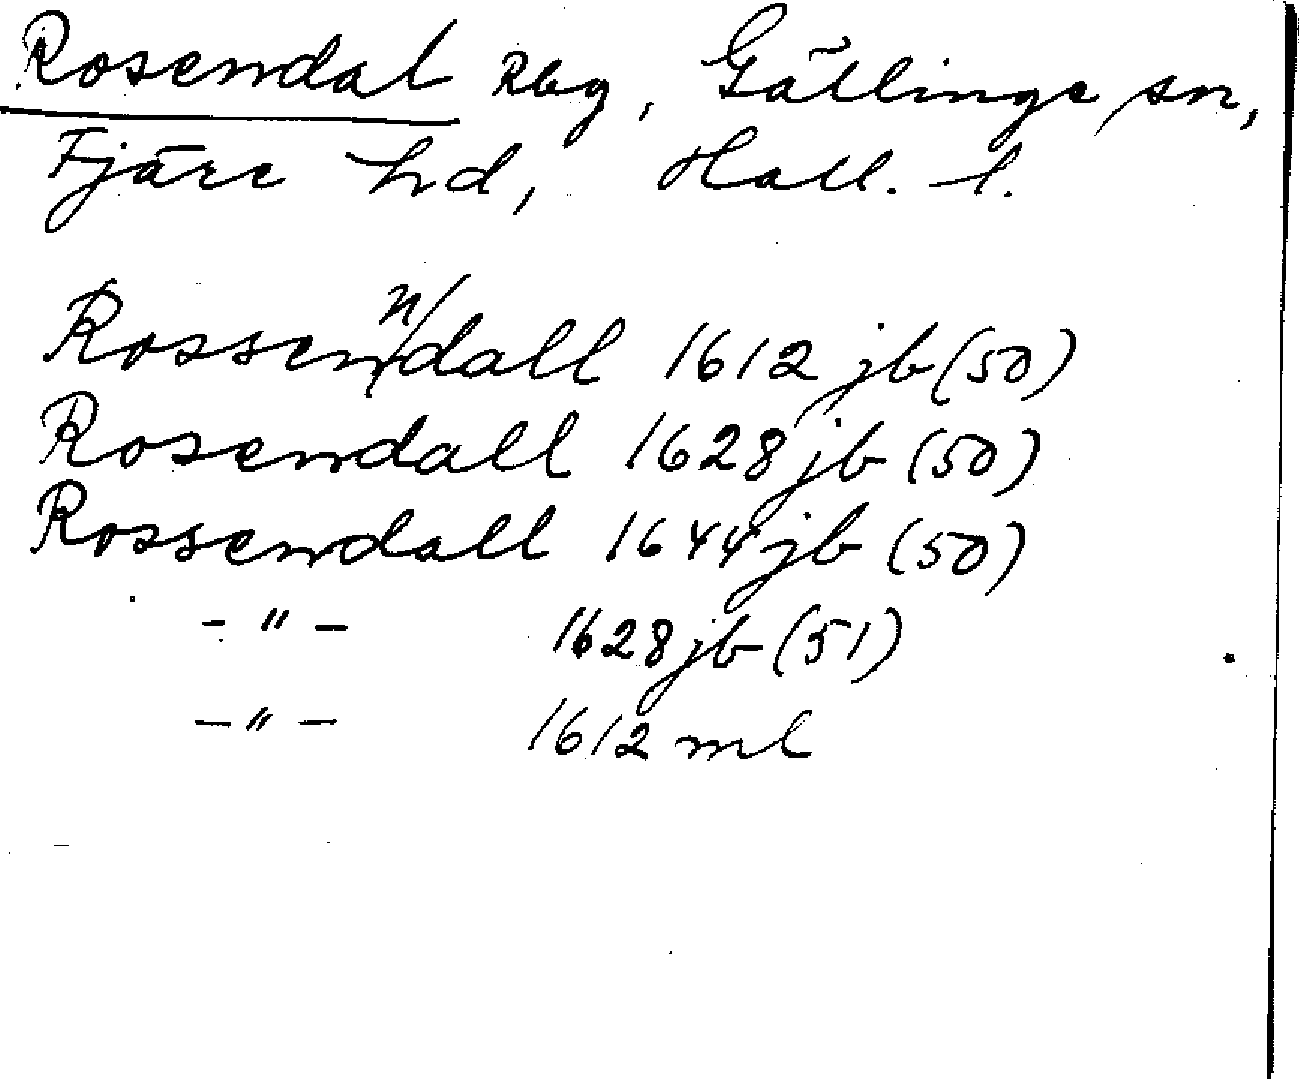 Rosendal Rbg, Gällinge sn,
Fjäre hd, Hall. l.
Rossenndall 1612 jb (50)
Rosendall 1628 jb (50)
Rossendall 1644 jb (50)
- " - 1628 jb (51)
- " - 1612 ml